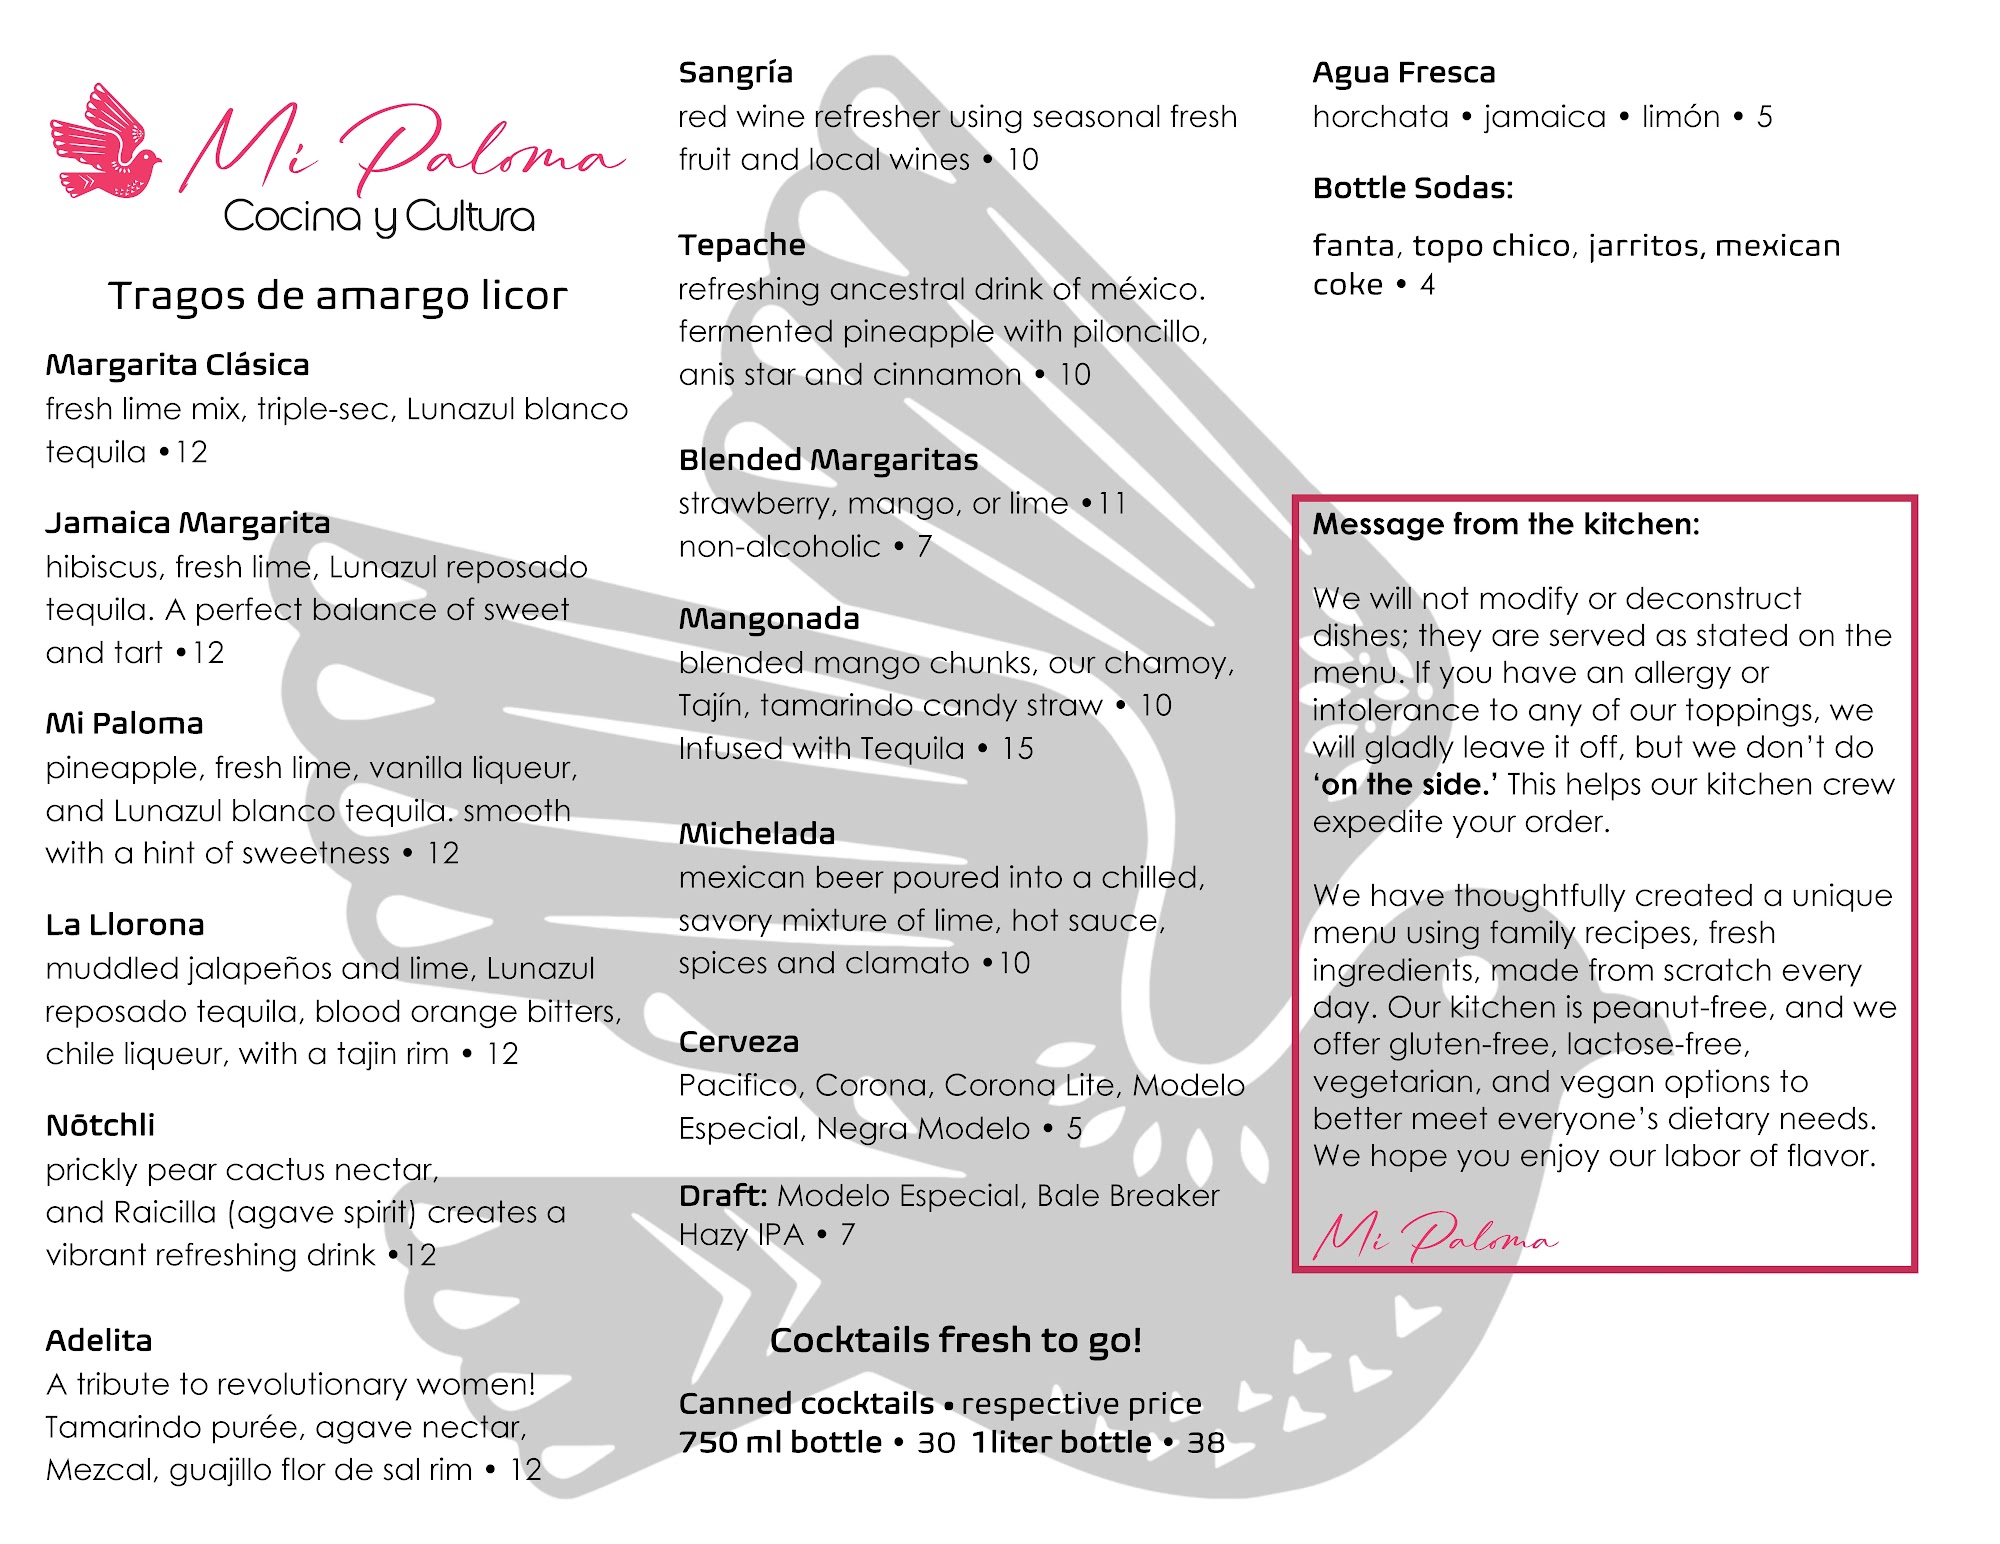 Mi Paloma
Cocina y Cultura
Tragos de amargo licor
Margarita Clásica
fresh lime mix, triple-sec, Lunazul blanco
tequila •12
Jamaica Margarita
hibiscus, fresh lime, Lunazul reposado
tequila. A perfect balance of sweet
and tart •12
Mi Paloma
pineapple, fresh lime, vanilla liqueur,
and Lunazul blanco tequila. smooth
with a hint of sweetness • 12
La Llorona
muddled jalapeños and lime, Lunazul
reposado tequila, blood orange bitters,
chile liqueur, with a tajin rim • 12
Nōtchli
prickly pear cactus nectar,
and Raicilla (agave spirit) creates a
vibrant refreshing drink •12
Adelita
A tribute to revolutionary women!
Tamarindo purée, agave nectar,
Mezcal, guajillo flor de sal rim • 12
Sangría
red wine refresher using seasonal fresh
fruit and local wines • 10
Tepache
refreshing ancestral drink of méxico.
fermented pineapple with piloncillo,
anis star and cinnamon • 10
Blended Margaritas
strawberry, mango, or lime •11
non-alcoholic • 7
Mangonada
blended mango chunks, our chamoy,
Tajín, tamarindo candy straw • 10
Infused with Tequila • 15
Michelada
mexican beer poured into a chilled,
savory mixture of lime, hot sauce,
spices and clamato •10
Cerveza
Pacifico, Corona, Corona Lite, Modelo
Especial, Negra Modelo • 5
Draft: Modelo Especial, Bale Breaker
Hazy IPA • 7
Cocktails fresh to go!
Canned cocktails • respective price
750 ml bottle • 30 1liter bottle • 38
Agua Fresca
horchata • jamaica • limón • 5
Bottle Sodas:
fanta, topo chico, jarritos, mexican
coke • 4
Message from the kitchen:
We will not modify or deconstruct
dishes; they are served as stated on the
menu. If you have an allergy or
intolerance to any of our toppings, we
will gladly leave it off, but we don't do
'on the side.' This helps our kitchen crew
expedite your order.
We have thoughtfully created a unique
menu using family recipes, fresh
ingredients, made from scratch every
day. Our kitchen is peanut-free, and we
offer gluten-free, lactose-free,
vegetarian, and vegan options to
better meet everyone's dietary needs.
We hope you enjoy our labor of flavor.
Mi Paloma